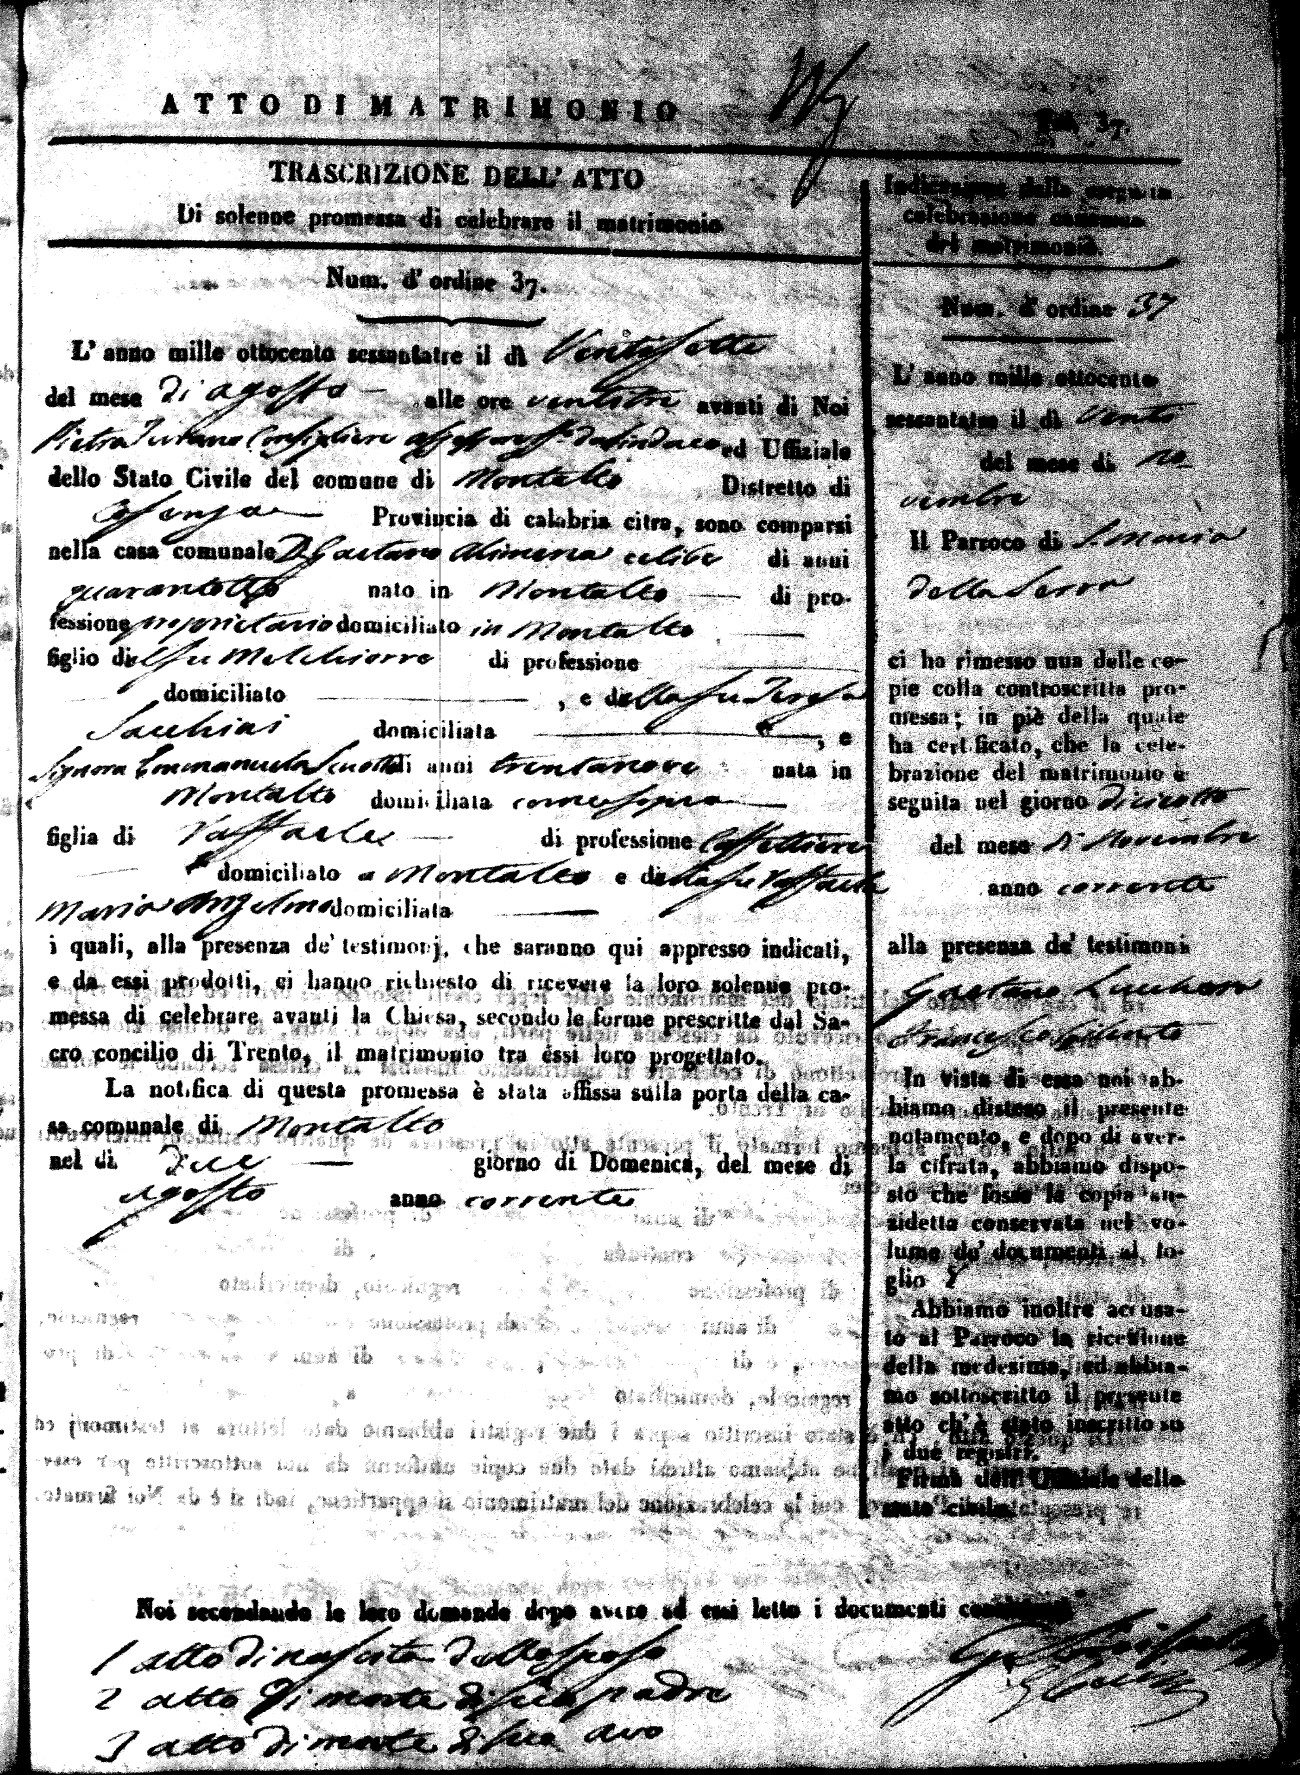 ATTO DI MATRIMONIO
Fol. 37.
TRASCRIZIONE DELL' ATTO
Di solenne promessa di celebrare il matrimonio
Num. d' ordine 37.
L' anno mille ottocento sessantatre il dì Ventisette
del mese di agosto alle ore ventitre avanti di Noi
Pietro Consigliere da Sindaco ed Uffiziale
dello Stato Civile del comune di Montalto Distretto di
Cosenza Provincia di calabria citra, sono comparsi
nella casa comunale D. Gaetano Alimena celibe di anni
quarantotto nato in Montalto di pro-
fessione proprietario domiciliato in Montalto
figlio del fu Melchiorre di professione
domiciliato , e della fu Teresa
Sacchini domiciliata , e
Signora Emmanuela di anni trentanove nata in
Montalto domiciliata come sopra
figlia di Raffaele di professione Caffettiere
domiciliato a Montalto e della fu Raffaela
Maria Anselmo domiciliata
i quali, alla presenza de' testimonj, che saranno qui appresso indicati,
e da essi prodotti, ci hanno richiesto di ricevere la loro solenne pro-
messa di celebrare avanti la Chiesa, secondo le forme prescritte dal Sa-
cro concilio di Trento, il matrimonio tra essi loro progettato.
La notifica di questa promessa è stata affissa sulla porta della ca-
sa comunale di Montalto
nel dì due giorno di Domenica, del mese di
agosto anno corrente
Indicazione della seguita
celebrazione canonica
del matrimonio.
Num. d' ordine 37
L' anno mille ottocento
sessantatre il dì Venti
del mese di no-
vembre
Il Parroco di S. Maria
della Serra
ci ha rimesso una delle co-
pie colla controscritta pro-
messa; in piè della quale
ha certificato, che la cele-
brazione del matrimonio è
seguita nel giorno diciotto
del mese di Novembre
anno corrente
alla presenza de' testimoni
Gaetano
Francesco
In vista di essa noi ab-
biamo disteso il presente
notamento, e dopo di aver-
la cifrata, abbiamo dispo-
sto che fosse la copia an-
zidetta conservata nel vo-
lume de' documenti al fo-
glio
Abbiamo inoltre accusa-
to al Parroco la ricezione
della medesima, ed abbia-
mo sottoscritto il presente
atto ch'è stato inscritto su
i due registri.
Firma dell' Uffiziale dello
stato civile
Noi secondando le loro domande dopo avere ad essi letto i documenti
1 atto di nascita dello sposo
2 atto di morte di suo padre
3 atto di morte di suo avo